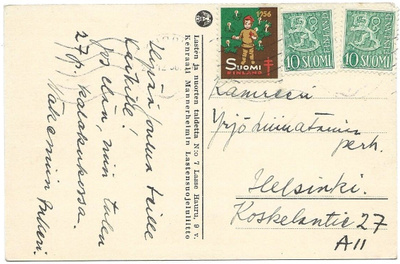 Hyvää joulua teille
kaikille!
Jos elän, niin tulen
27 p. kalakukossa.
Lasten ja nuorten taidetta N:o 7 Lasse Hauru, 9 v.
Kenraali Mannerheimin Lastensuojeluliitto
1956
SUOMI
FINLAND
10 SUOMI
10 SUOMI
Kamreeri
perh.
Helsinki.
Koskelantie 27
A 11